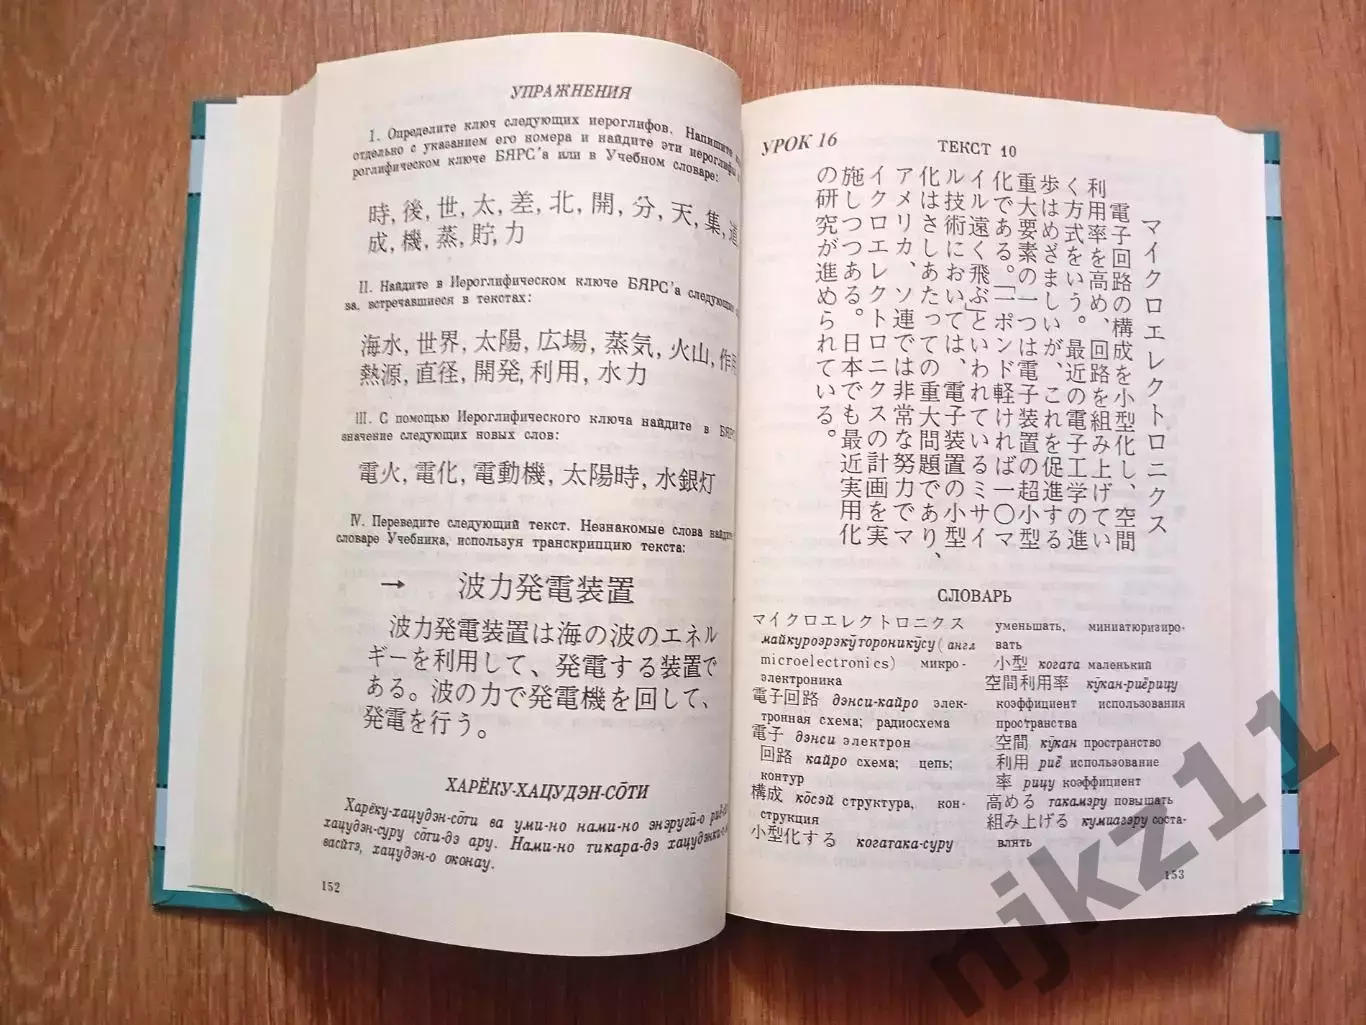 УПРАЖНЕНИЯ
I. Определите ключ следующих иероглифов. Напишите
отдельно с указанием его номера и найдите эти иероглифы
роглифическом ключе БЯРС'а или в Учебном словаре:
時, 後, 世, 太, 差, 北, 開, 分, 天, 集, 道
成, 機, 蒸, 貯, 力
II. Найдите в Иероглифическом ключе БЯРС'а следующие
за, встречавшиеся в текстах:
海水, 世界, 太陽, 広場, 蒸気, 火山, 作用
熱源, 直径, 開発, 利用, 水力
III. С помощью Иероглифического ключа найдите в БЯРС
значение следующих новых слов:
電火, 電化, 電動機, 太陽時, 水銀灯
IV. Переведите следующий текст. Незнакомые слова найдите
словаре Учебника, используя транскрипцию текста:
→ 波力発電装置
波力発電装置は海の波のエネル
ギーを利用して、発電する装置で
ある。波の力で発電機を回して、
発電を行う。
ХАРЁКУ-ХАЦУДЭН-СО̄ТИ
Харёку-хацудэн-со̄ти ва уми-но нами-но энэругӣ-о
хацудэн-суру со̄ти-дэ ару. Нами-но тикара-дэ хацудэнки-о
васйтэ, хацудэн-о оконау.
152
УРОК 16
ТЕКСТ 10
マイクロエレクトロニクス
電子回路の構成を小型化し、空間
利用率を高め、回路を組み上げてい
く方式をいう。最近の電子工学の進
歩はめざましいが、これを促進する
重大要素の一つは電子装置の超小型
化である。「一ポンド軽ければ一〇マ
イル遠く飛ぶ」といわれているミサイ
ル技術においては、電子装置の小型
化はさしあたっての重大問題であり、
アメリカ、ソ連では非常な努力でマ
イクロエレクトロニクスの計画を実
施しつつある。日本でも最近実用化
の研究が進められている。
СЛОВАРЬ
マイクロエレクトロニクス
майкуроэрэкўтороникӯсу (англ
microelectronics) микро-
электроника
電子回路 дэнси-кайро элек-
тронная схема; радиосхема
電子 дэнси электрон
回路 кайро схема; цепь;
контур
構成 ко̄сэй структура, кон-
струкция
小型化する когатака-суру
уменьшать, миниатюризиро-
вать
小型 когата маленький
空間利用率 кӯкан-риёрицу
коэффициент использования
пространства
空間 кӯкан пространство
利用 риё̄ использование
率 рицу коэффициент
高める такамэру повышать
組み上げる кумиагэру соста-
влять
153
njkz11